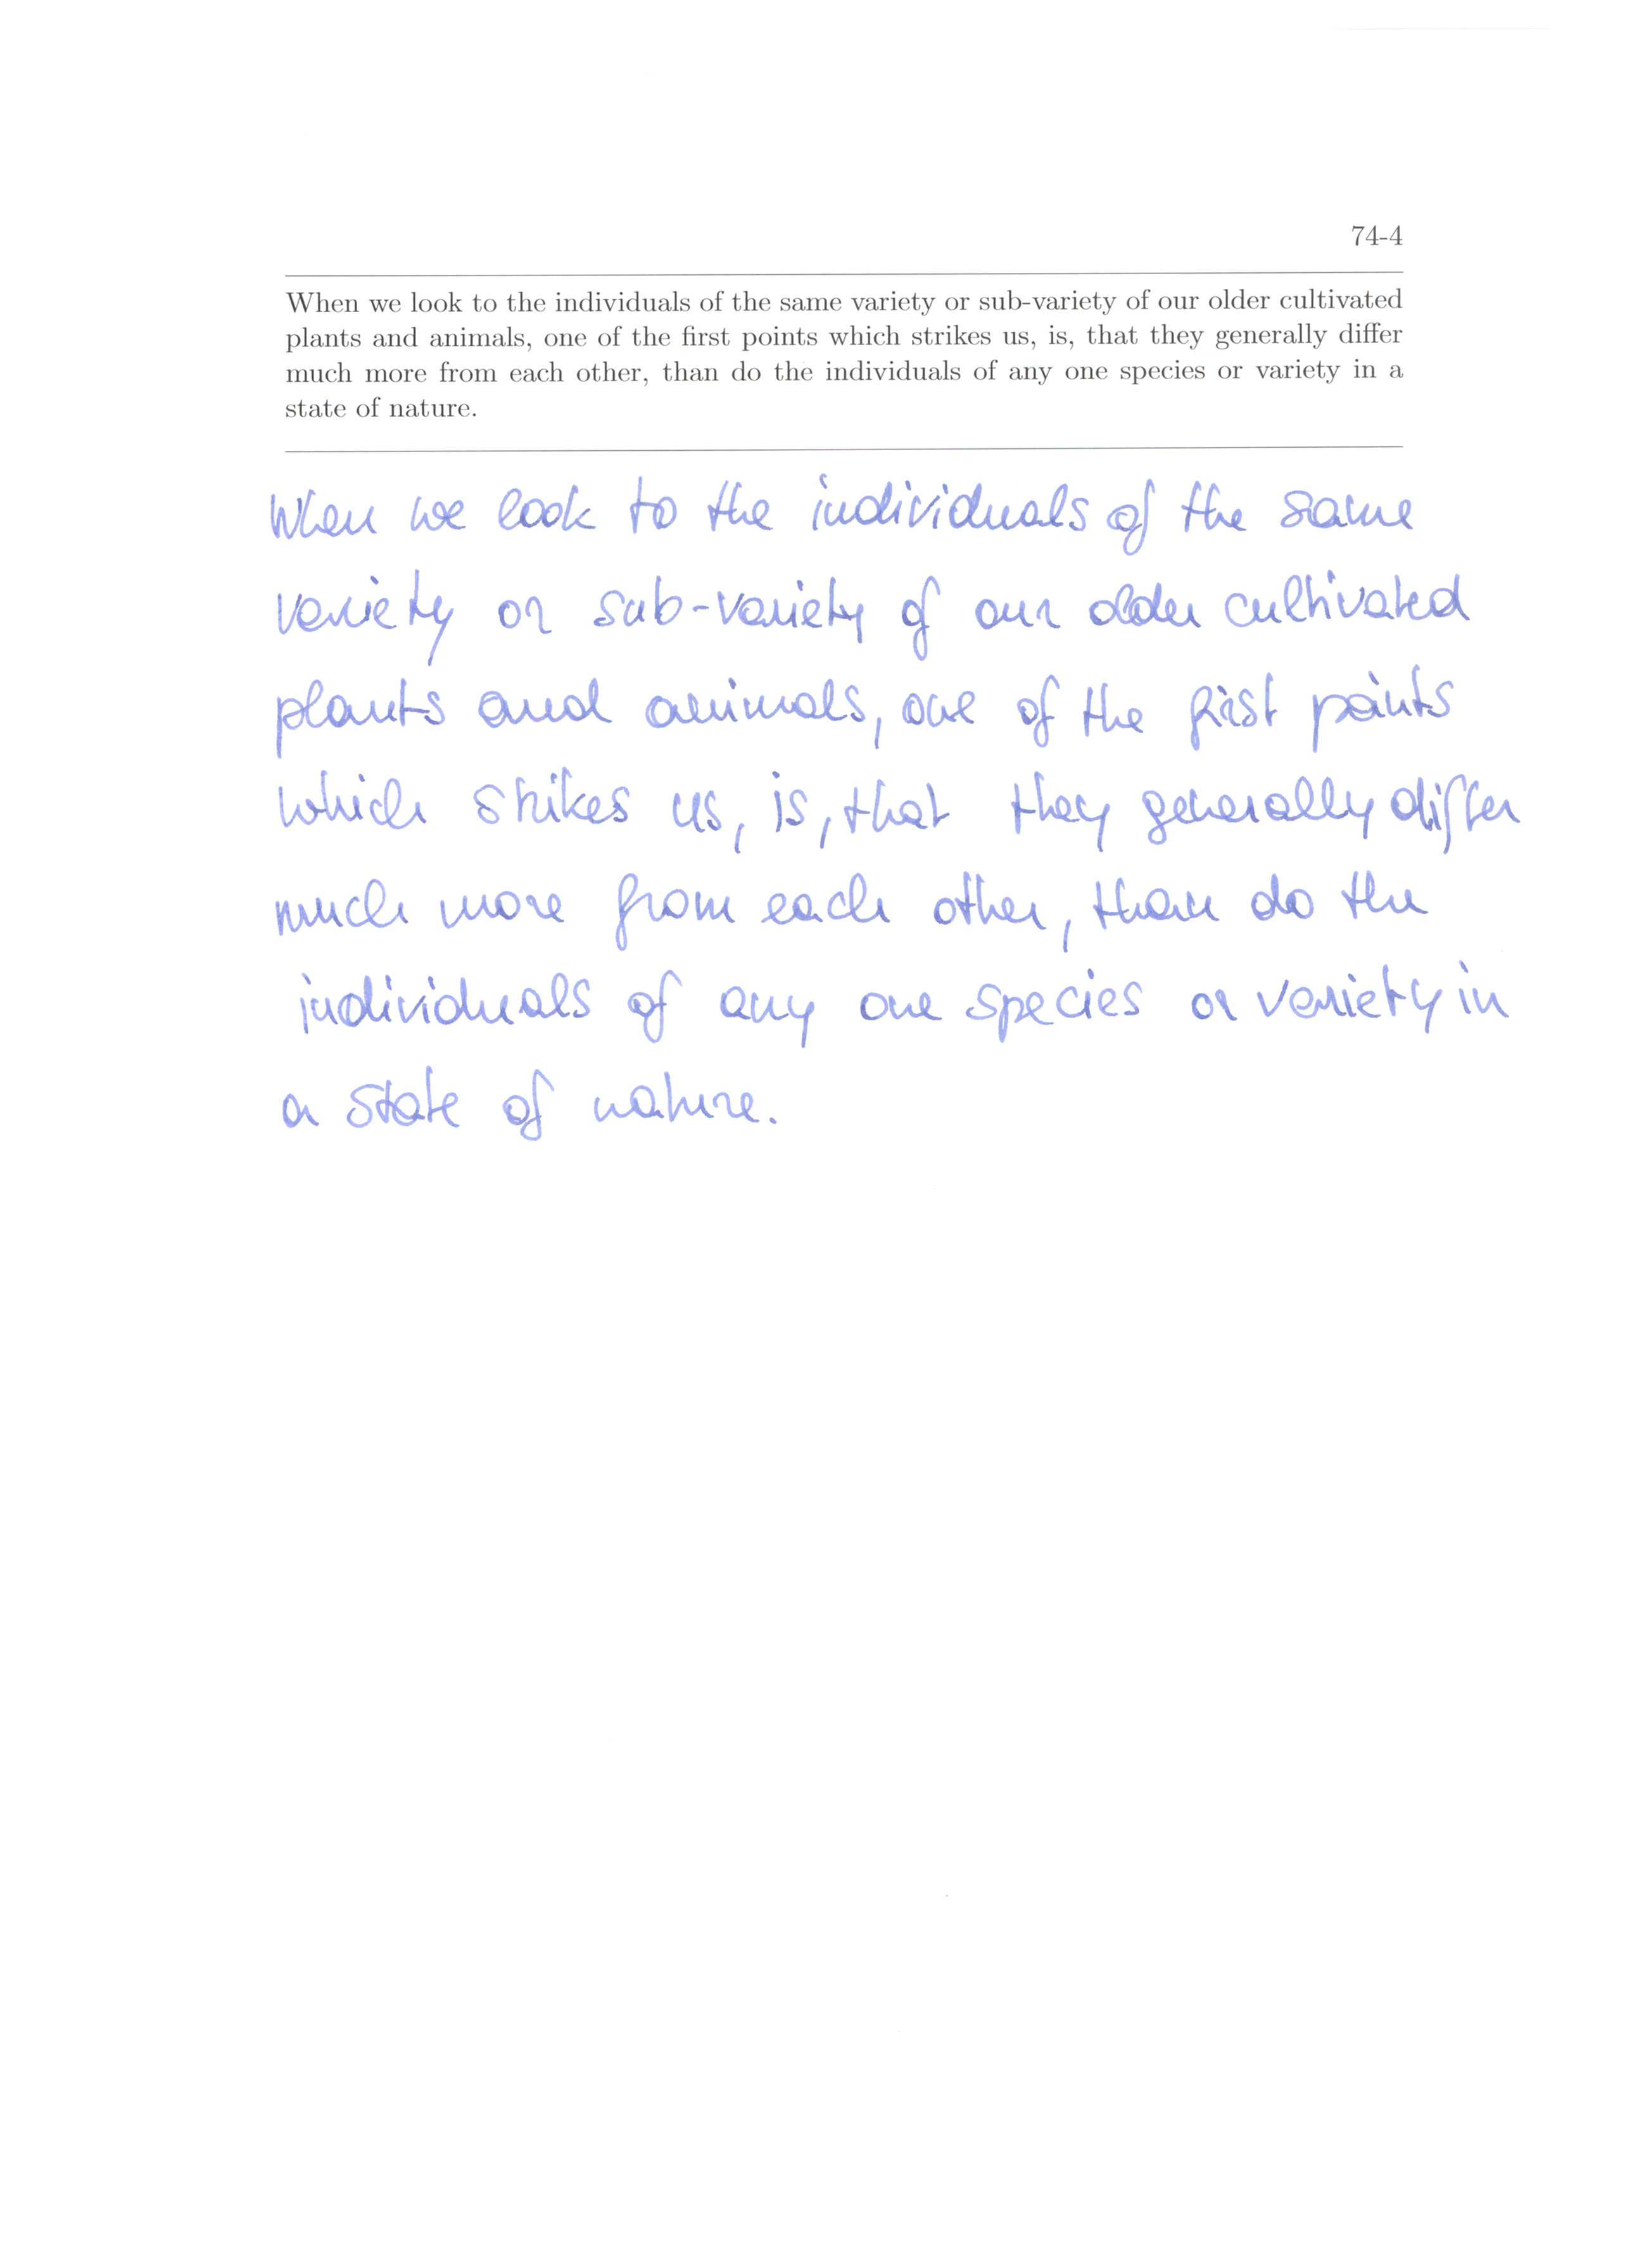 74-4
When we look to the individuals of the same variety or sub-variety of our older cultivated
plants and animals, one of the first points which strikes us, is, that they generally differ
much more from each other, than do the individuals of any one species or variety in a
state of nature.
When we look to the individuals of the same
variety or sub-variety of our older cultivated
plants and animals, one of the first points
which strikes us, is, that they generally differ
much more from each other, than do the
individuals of any one species or variety in
a state of nature.